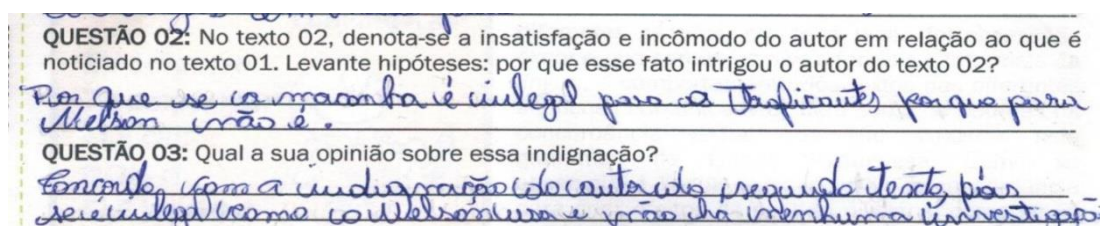 QUESTÃO 02: No texto 02, denota-se a insatisfação e incômodo do autor em relação ao que é
noticiado no texto 01. Levante hipóteses: por que esse fato intrigou o autor do texto 02?
Por que se a maconha é inlegal para a Traficantes, porque para
Melson não é.
QUESTÃO 03: Qual a sua opinião sobre essa indignação?
Concordo, com a indignação do autor do segundo texto, pois
se é inlegal como o Welson usa e não há nenhuma investigação